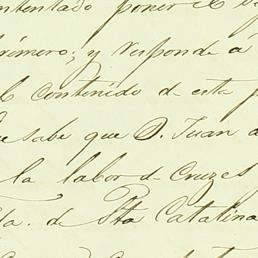 ntentado poner
rimero; y responde á
el contenido de esta p
e sabe que D. Juan d
la labor de Cruzes
da. de Sta Catalina